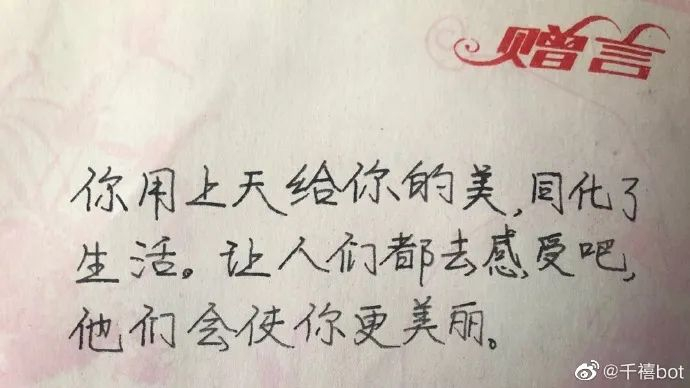 赠言
你用上天给你的美,同化了
生活。让人们都去感受吧,
他们会使你更美丽。
@千禧bot